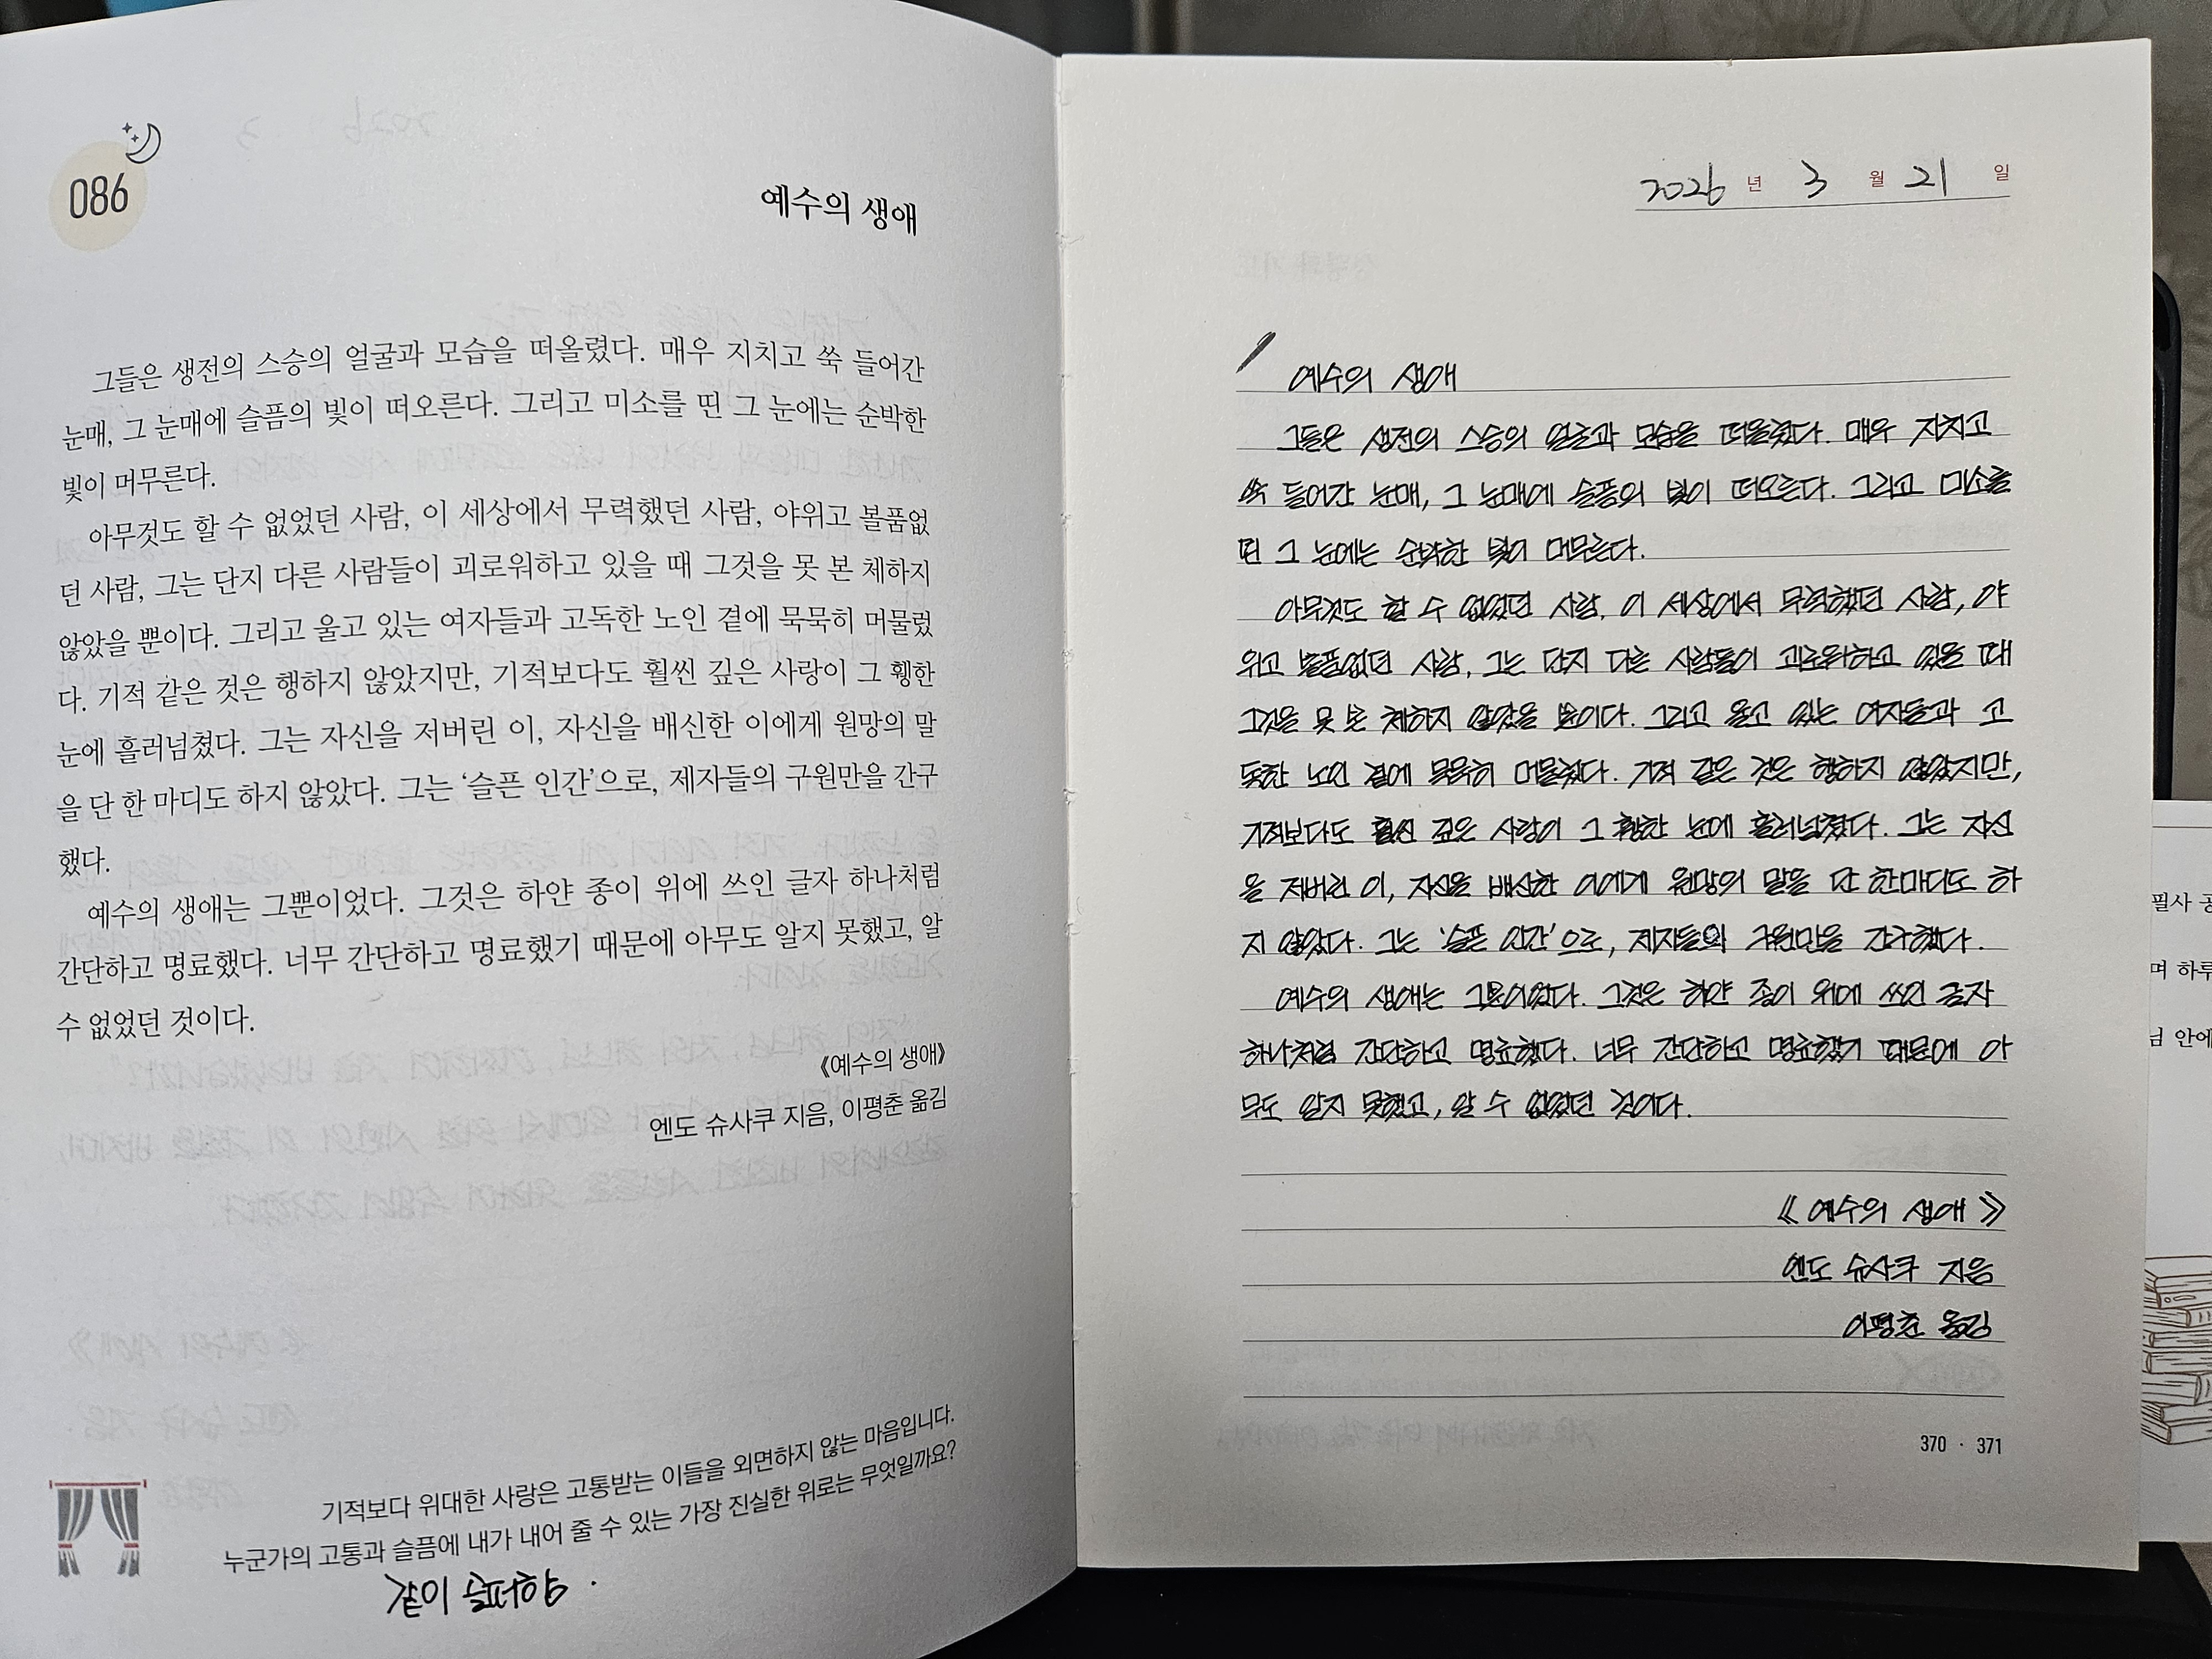 086
예수의 생애
그들은 생전의 스승의 얼굴과 모습을 떠올렸다. 매우 지치고 쑥 들어간
눈매, 그 눈매에 슬픔의 빛이 떠오른다. 그리고 미소를 띤 그 눈에는 순박한
빛이 머무른다.
아무것도 할 수 없었던 사람, 이 세상에서 무력했던 사람, 야위고 볼품없
던 사람, 그는 단지 다른 사람들이 괴로워하고 있을 때 그것을 못 본 체하지
않았을 뿐이다. 그리고 울고 있는 여자들과 고독한 노인 곁에 묵묵히 머물렀
다. 기적 같은 것은 행하지 않았지만, 기적보다도 훨씬 깊은 사랑이 그 휑한
눈에 흘러넘쳤다. 그는 자신을 저버린 이, 자신을 배신한 이에게 원망의 말
을 단 한 마디도 하지 않았다. 그는 ‘슬픈 인간’으로, 제자들의 구원만을 간구
했다.
예수의 생애는 그뿐이었다. 그것은 하얀 종이 위에 쓰인 글자 하나처럼
간단하고 명료했다. 너무 간단하고 명료했기 때문에 아무도 알지 못했고, 알
수 없었던 것이다.
《예수의 생애》
엔도 슈사쿠 지음, 이평춘 옮김
기적보다 위대한 사랑은 고통받는 이들을 외면하지 않는 마음입니다.
누군가의 고통과 슬픔에 내가 내어 줄 수 있는 가장 진실한 위로는 무엇일까요?
2026 년 3 월 21 일
예수의 생애
그들은 생전의 스승의 얼굴과 모습을 떠올렸다. 매우 지치고
쑥 들어간 눈매, 그 눈매에 슬픔의 빛이 떠오른다. 그리고 미소를
띤 그 눈에는 순박한 빛이 머무른다.
아무것도 할 수 없었던 사람, 이 세상에서 무력했던 사람, 야
위고 볼품없던 사람, 그는 단지 다른 사람들이 괴로워하고 있을 때
그것을 못 본 체하지 않았을 뿐이다. 그리고 울고 있는 여자들과 고
독한 노인 곁에 묵묵히 머물렀다. 기적 같은 것은 행하지 않았지만,
기적보다도 훨씬 깊은 사랑이 그 휑한 눈에 흘러넘쳤다. 그는 자신
을 저버린 이, 자신을 배신한 이에게 원망의 말을 단 한마디도 하
지 않았다. 그는 ‘슬픈 인간’으로, 제자들의 구원만을 간구했다.
예수의 생애는 그뿐이었다. 그것은 하얀 종이 위에 쓰인 글자
하나처럼 간단하고 명료했다. 너무 간단하고 명료했기 때문에 아
무도 알지 못했고, 알 수 없었던 것이다.
《예수의 생애》
엔도 슈사쿠 지음
이평춘 옮김
370 · 371
필사 공
며 하루
님 안에